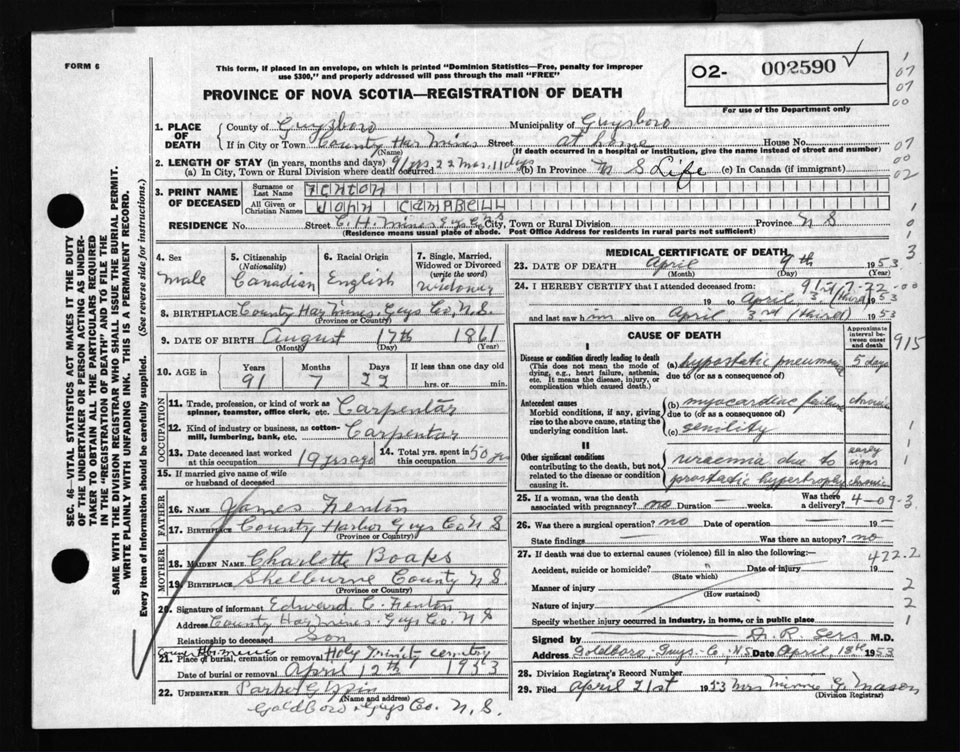 FORM 6
This form, if placed in an envelope, on which is printed "Dominion Statistics—Free, penalty for improper
use $300," and properly addressed will pass through the mail "FREE"
PROVINCE OF NOVA SCOTIA—REGISTRATION OF DEATH
O2- 002590 ✓
For use of the Department only
1
07
07
00
07
00
02
SEC. 46—VITAL STATISTICS ACT MAKES IT THE DUTY
OF THE UNDERTAKER OR PERSON ACTING AS UNDER-
TAKER TO OBTAIN ALL THE PARTICULARS REQUIRED
IN THE "REGISTRATION OF DEATH" AND TO FILE THE
SAME WITH THE DIVISION REGISTRAR WHO SHALL ISSUE THE BURIAL PERMIT.
WRITE PLAINLY WITH UNFADING INK. THIS IS A PERMANENT RECORD.
Every item of information should be carefully supplied. (See reverse side for instructions.)
1. PLACE OF DEATH
County of Guysboro Municipality of Guysboro
If in City or Town County Har Mines Street at home House No.
(Name) (If death occurred in a hospital or institution, give the name instead of street and number)
2. LENGTH OF STAY (in years, months and days)
(a) In City, Town or Rural Division where death occurred 91 yrs. 22 mos. 11 days (b) In Province N S Life (c) In Canada (if immigrant)
3. PRINT NAME OF DECEASED
Surname or Last Name FENTON
All Given or Christian Names JOHN CAMPBELL
RESIDENCE No. Street C. H. Mines Guys Co N S City, Town or Rural Division Province N S
(Residence means usual place of abode. Post Office Address for residents in rural parts not sufficient)
4. Sex
male
5. Citizenship (Nationality)
Canadian
6. Racial Origin
English
7. Single, Married, Widowed or Divorced (write the word)
widower
8. BIRTHPLACE County Har Mines Guys Co, N.S.
(Province or Country)
9. DATE OF BIRTH August 17th 1861
(Month) (Day) (Year)
10. AGE in Years Months Days If less than one day old
91 7 22 hrs. or min.
OCCUPATION
11. Trade, profession, or kind of work as spinner, teamster, office clerk, etc. Carpentar
12. Kind of industry or business, as cotton-mill, lumbering, bank, etc. Carpentar
13. Date deceased last worked at this occupation 19 yrs ago 14. Total yrs. spent in this occupation 50 yrs
15. If married give name of wife or husband of deceased
FATHER
16. Name James Fenton
17. Birthplace County Harbor Guys Co N S
(Province or Country)
MOTHER
18. Maiden Name Charlotte Boaks
19. Birthplace Shelburne County N S
(Province or Country)
20. Signature of informant Edward C. Fenton
Address County Har Mines Guys Co. N S
Relationship to deceased Son
21. Place of burial, cremation or removal Holy Trinity cemetry
Date of burial or removal April 12th 1953
22. UNDERTAKER Parker
(Name and address)
Goldboro Guys Co. N.S.
MEDICAL CERTIFICATE OF DEATH
23. DATE OF DEATH April 9th 1953
(Month) (Day) (Year)
24. I HEREBY CERTIFY that I attended deceased from
19 to April 3 (third) 1953
and last saw him alive on April 3rd (third) 1953
CAUSE OF DEATH
Approximate interval between onset and death
I
Disease or condition directly leading to death
(This does not mean the mode of dying, e.g., heart failure, asthenia, etc. It means the disease, injury, or complication which caused death.)
(a) hypostatic pneumonia 5 days
due to (or as a consequence of)
Antecedent causes
Morbid conditions, if any, giving rise to the above cause, stating the underlying condition last.
(b) myocardiac failure chronic
due to (or as a consequence of)
(c) senility
II
Other significant conditions
contributing to the death, but not related to the disease or condition causing it.
uraemia due to early signs
prostatic hypertrophy chronic
25. If a woman, was the death associated with pregnancy? no Duration weeks. Was there a delivery?
4-09-3
26. Was there a surgical operation? no Date of operation 19
State findings Was there an autopsy? no
27. If death was due to external causes (violence) fill in also the following:
422.2
Accident, suicide or homicide? Date of injury 19
(State which)
Manner of injury
(How sustained)
Nature of injury
Specify whether injury occurred in industry, in home, or in public place
Signed by M.D.
Address Goldboro Guys Co., N.S Date April, 18th 1953
28. Division Registrar's Record Number
29. Filed April 21st 1953 Mrs Minnie G. Mason
(Division Registrar)
915